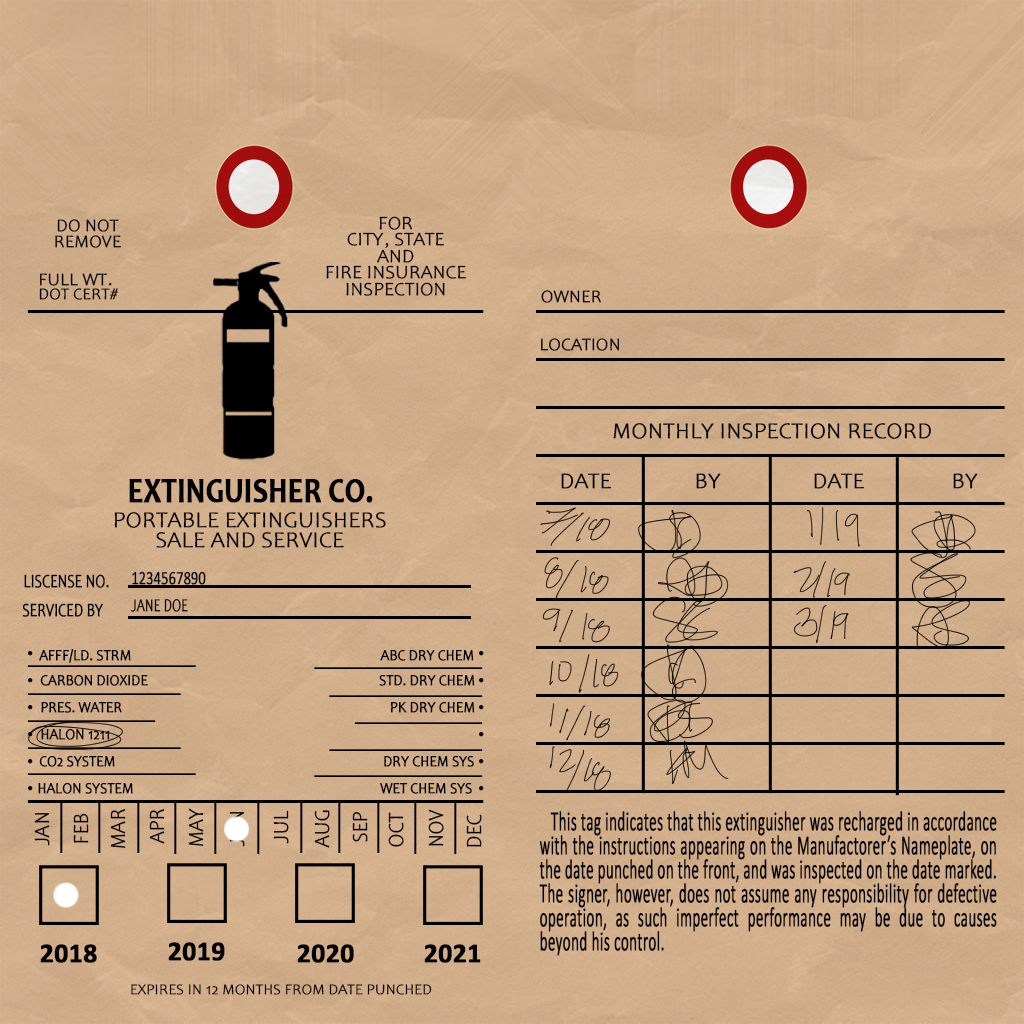 DO NOT
REMOVE
FULL WT.
DOT CERT#
FOR
CITY, STATE
AND
FIRE INSURANCE
INSPECTION
EXTINGUISHER CO.
PORTABLE EXTINGUISHERS
SALE AND SERVICE
LISCENSE NO. 1234567890
SERVICED BY JANE DOE
• AFFF/LD. STRM ABC DRY CHEM •
• CARBON DIOXIDE STD. DRY CHEM •
• PRES. WATER PK DRY CHEM •
• HALON 1211 •
• CO2 SYSTEM DRY CHEM SYS •
• HALON SYSTEM WET CHEM SYS •
JAN FEB MAR APR MAY JUL AUG SEP OCT NOV DEC
2018 2019 2020 2021
EXPIRES IN 12 MONTHS FROM DATE PUNCHED
OWNER
LOCATION
MONTHLY INSPECTION RECORD
DATE BY DATE BY
7/18 1/19
8/18 2/19
9/18 3/19
10/18
11/18
12/18
This tag indicates that this extinguisher was recharged in accordance
with the instructions appearing on the Manufactorer's Nameplate, on
the date punched on the front, and was inspected on the date marked.
The signer, however, does not assume any responsibility for defective
operation, as such imperfect performance may be due to causes
beyond his control.